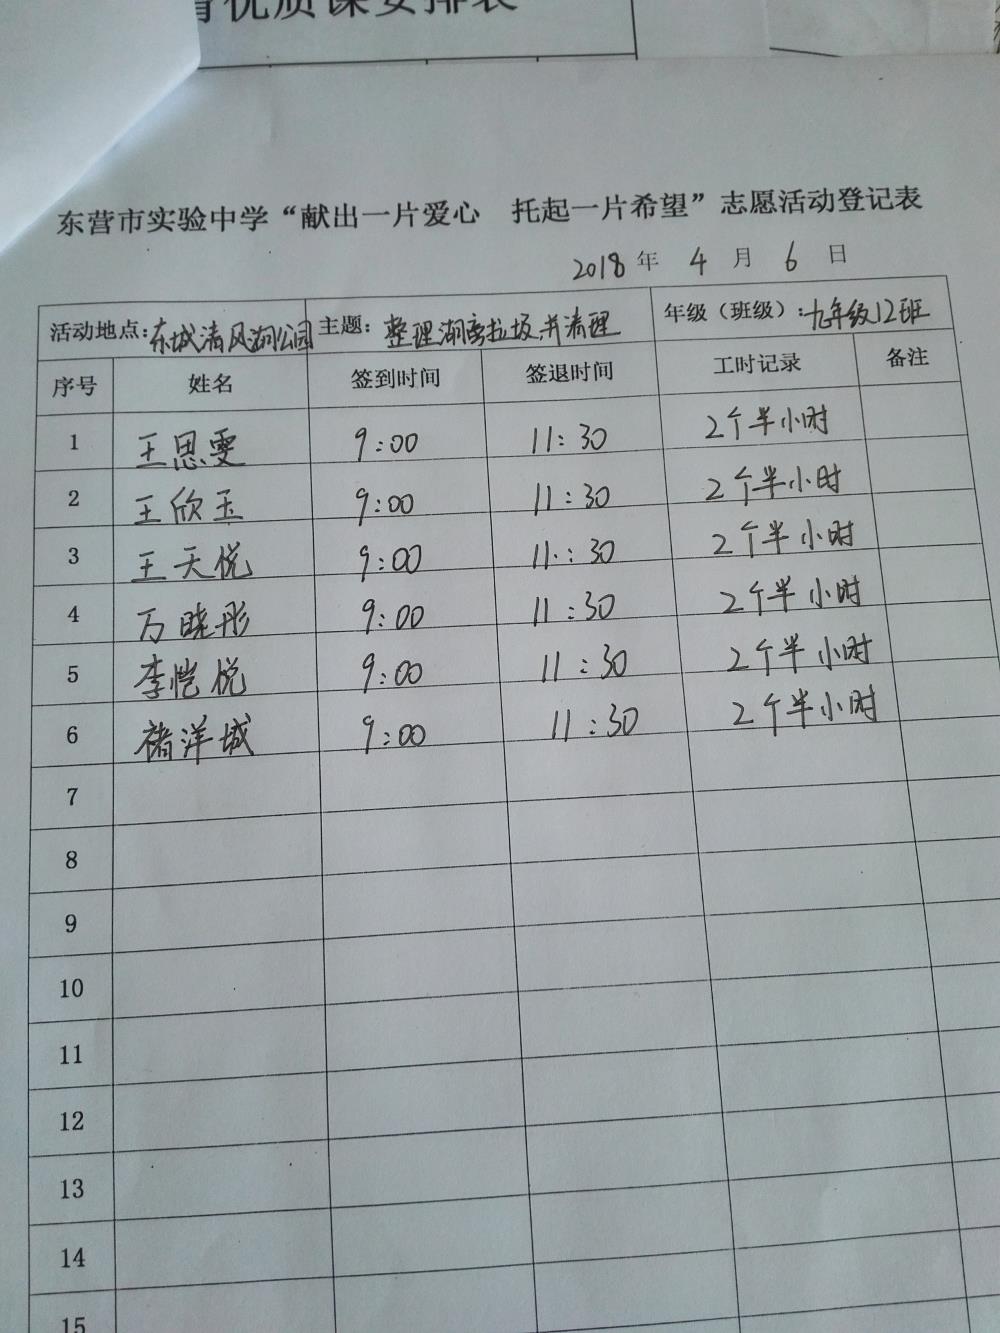 优质课安排表
东营市实验中学“献出一片爱心 托起一片希望”志愿活动登记表
2018 年 4 月 6 日
活动地点:东城清风湖公园 主题：整理湖旁垃圾,并清理 年级（班级）:九年级12班
序号 姓名 签到时间 签退时间 工时记录 备注
1 王思雯 9:00 11:30 2个半小时
2 王欣玉 9:00 11:30 2个半小时
3 王天悦 9:00 11:30 2个半小时
4 万晓彤 9:00 11:30 2个半小时
5 李恺悦 9:00 11:30 2个半小时
6 褚洋城 9:00 11:30 2个半小时
7
8
9
10
11
12
13
14
15